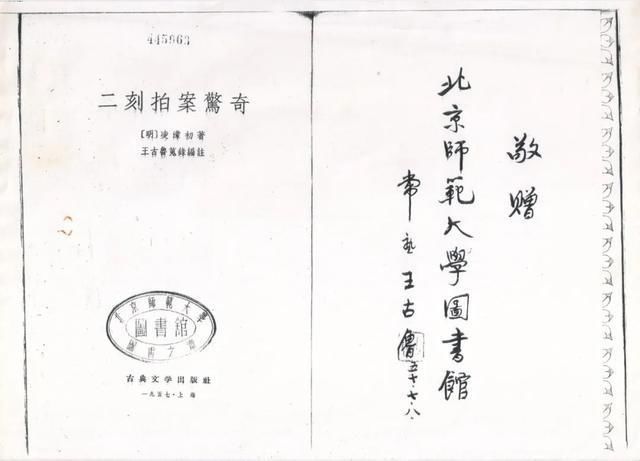 445963
二刻拍案驚奇
[明]凌濛初著
王古魯蒐錄編註
北京師範大學
圖書館
圖書之章
古典文学出版社
一九五七·上海
敬贈
北京師範大學圖書館
常熟 王古魯